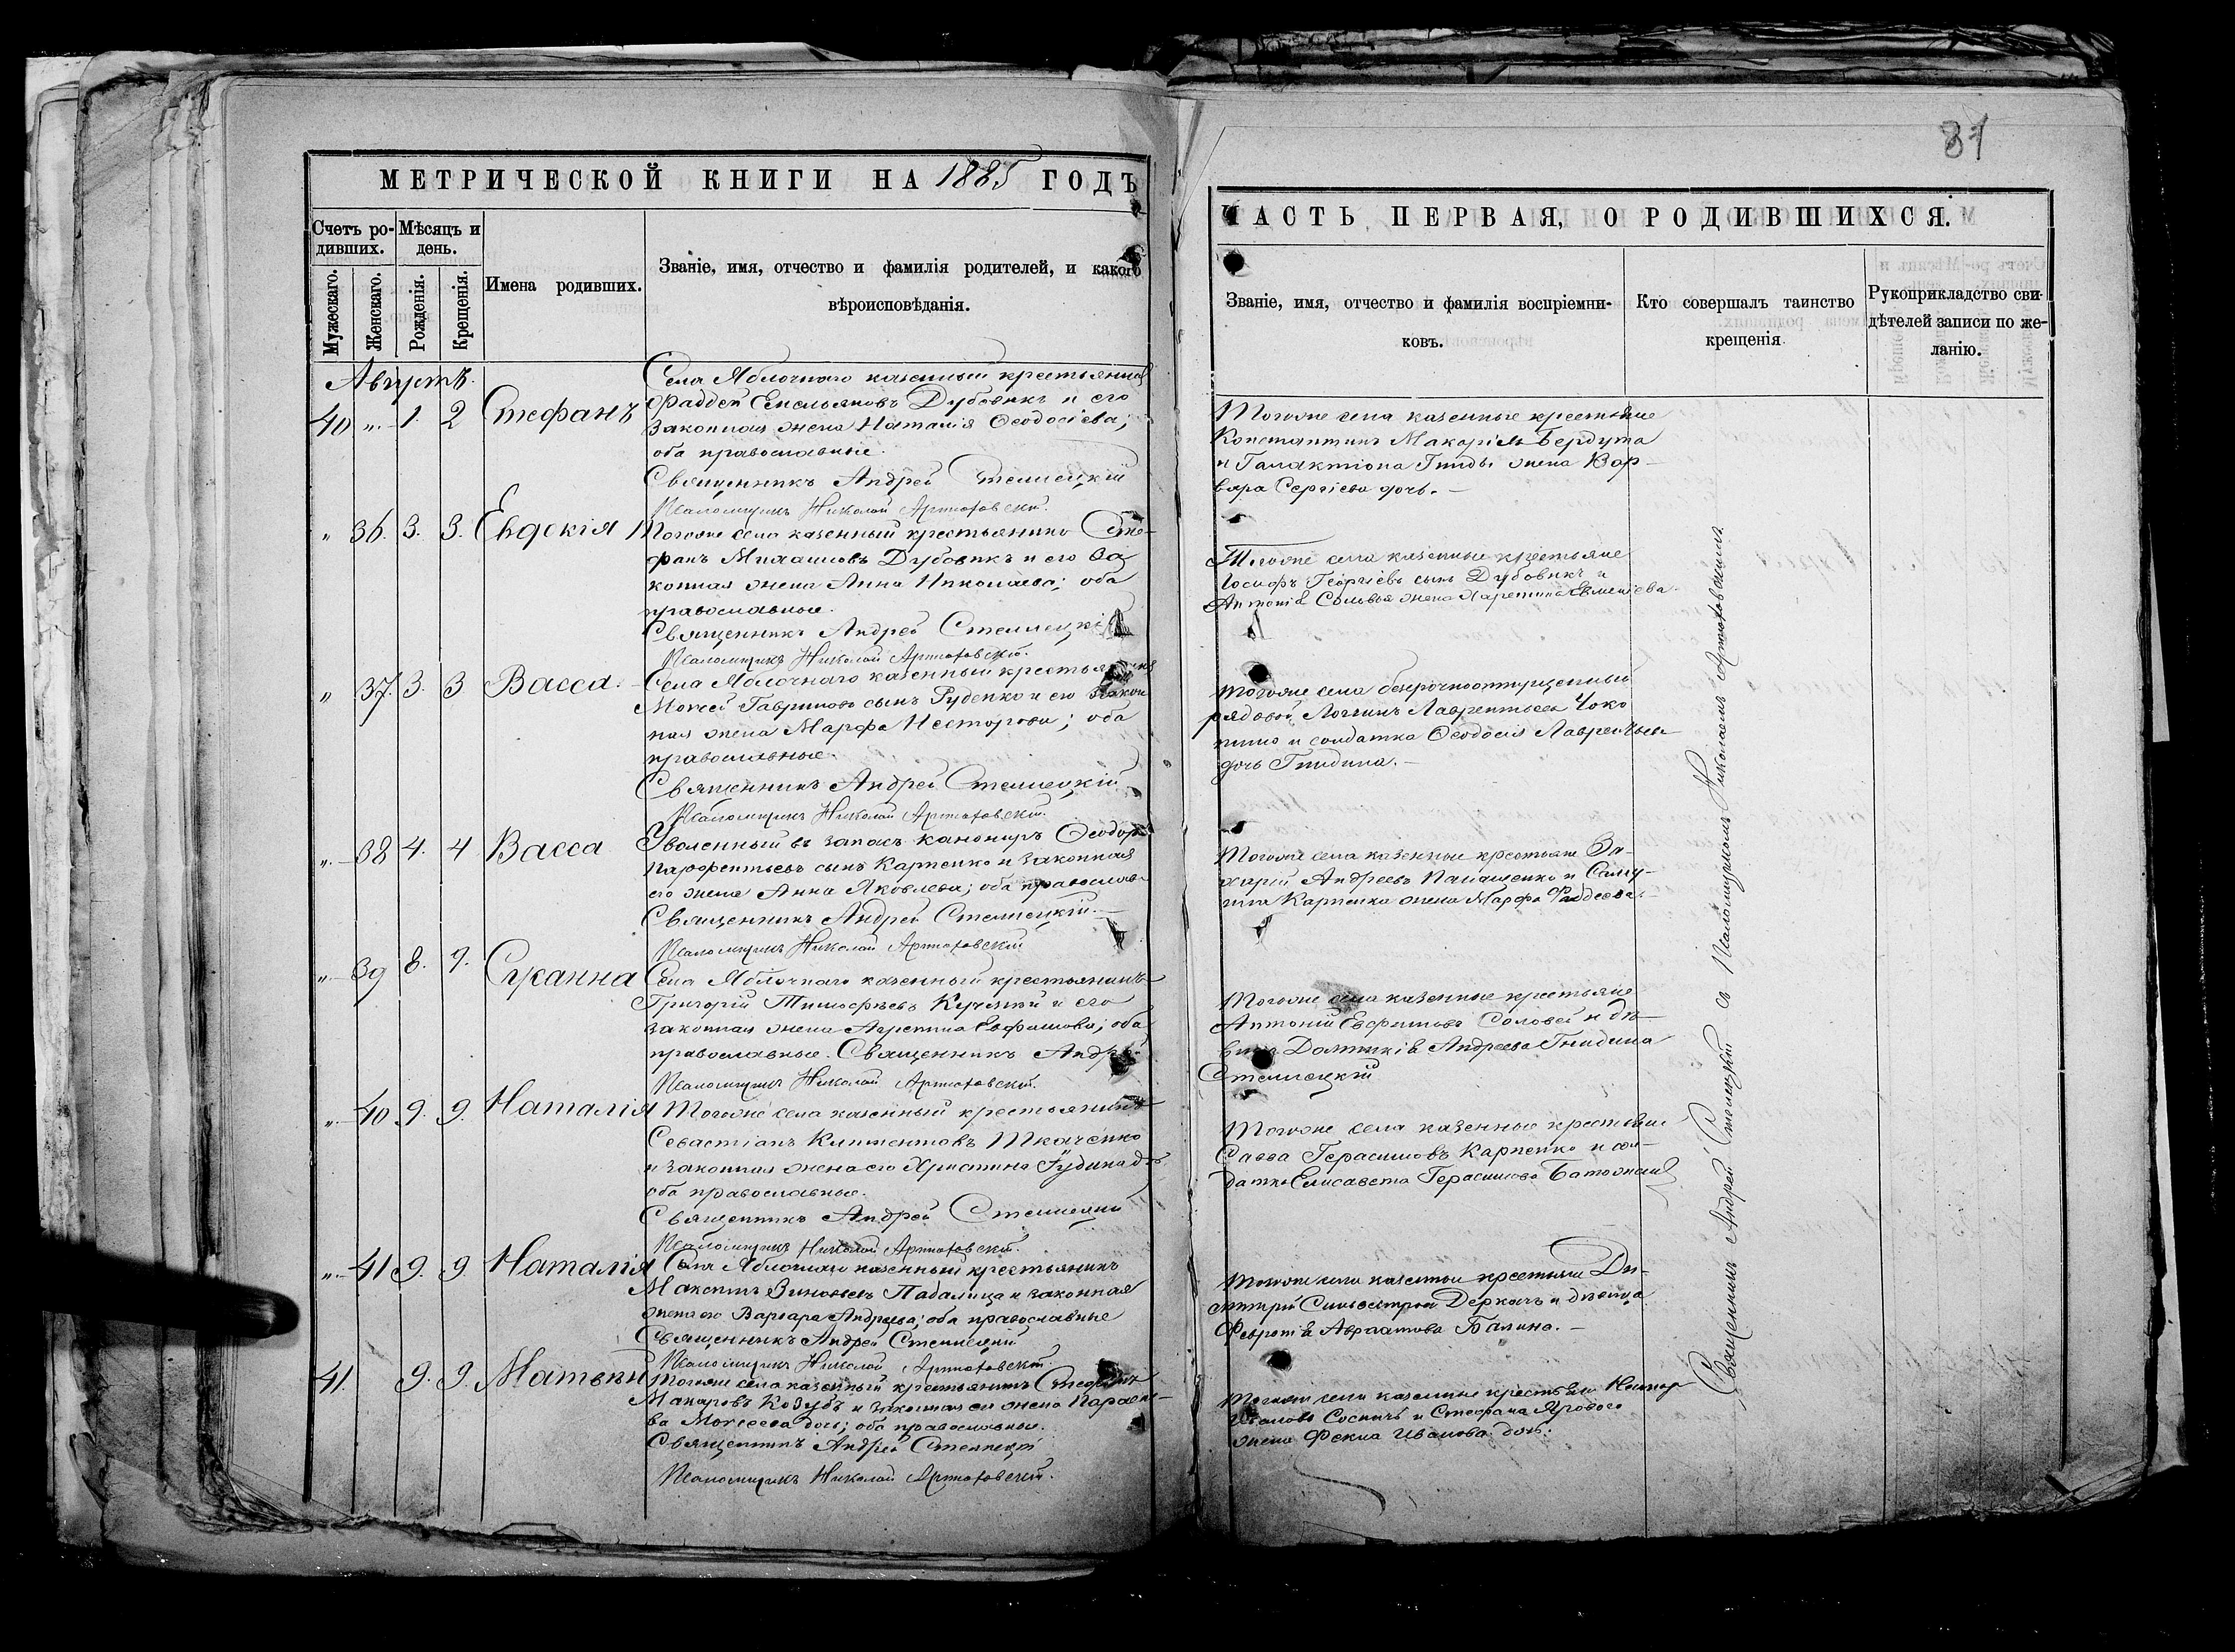 МЕТРИЧЕСКОЙ КНИГИ НА 1885 ГОДЪ
Счетъ ро-
дившихъ.
Мѣсяцъ и
день.
Мужескаго.
Женскаго.
Рожденія.
Крещенія.
Имена родившихъ.
Званіе, имя, отчество и фамилія родителей, и какого
вѣроисповѣданія.
Августъ.
40 „ 1. 2 Стефанъ
Села Яблочнаго казенный крестьянинъ
Фаддей Емельяновъ Дубовикъ и его
законная жена Наталія Ѳеодосіева;
оба православные.
Священникъ Андрей Стеллецкій
Псаломщикъ Николай Артюховскій.
„ 36. 3. 3. Евдокія
Тогоже села казенный крестьянинъ Сте-
фанъ Михаиловъ Дубовикъ и его за
конная жена Анна Николаева; оба
православные.
Священникъ Андрей Стеллецкій
Псаломщикъ Николай Артюховскій.
„ 37. 3. 3 Васса.
Села Яблочнаго казенный крестьянинъ
Моисей Гавриловъ сынъ Руденко и его закон
ная жена Марфа Несторова; оба
православные.
Священникъ Андрей Стеллецкій
Псаломщикъ Николай Артюховскій.
„ 38 4. 4 Васса
Уволенный въ запасъ канониръ Ѳеодоръ
Парфентьевъ сынъ Карпенко и законная
его жена Анна Яковлева; оба православ-
Священникъ Андрей Стеллецкій.
Псаломщикъ Николай Артюховскій
„ 39 8. 9. Сусанна
Села Яблочнаго казенный крестьянинъ
Григорій Тимофѣевъ и его
законная жена Агрепина Евфимова; оба
православные. Священникъ Андрей
Псаломщикъ Николай Артюховскій.
„ 40 9. 9. Наталія
Тогоже села казенный крестьянинъ
Севастіанъ Климентовъ Ткаченко
и законная жена его Христина
оба православные.
Священникъ Андрей Стеллецкій
Псаломщикъ Николай Артюховскій.
„ 41 9. 9. Наталія
Села Яблочнаго казенный крестьянинъ
Максимъ Зиновьевъ Падалица и законная
жена его Варвара Андреева; оба православные
Священникъ Андрей Стеллецкій
Псаломщикъ Николай Артюховскій.
41. 9. 9. Матвѣй
Тогоже села казенный крестьянинъ Стефанъ
Макаровъ Козубъ и законная его жена Параске-
ва Моисеева дочь; оба православные.
Священникъ Андрей Стеллецкій
Псаломщикъ Николай Артюховскій.
87
ЧАСТЬ ПЕРВАЯ, О РОДИВШИХСЯ.
Званіе, имя, отчество и фамилія воспріемни-
ковъ.
Кто совершалъ таинство
крещенія
Рукоприкладство сви-
дѣтелей записи по же-
ланію.
Тогоже села казенные крестьяне
Константинъ Макаріевъ Бердута
и Галактіона жена Вар-
вара Сергіева дочь.
Тогоже села казенные крестьяне
Іосифъ Георгіевъ сынъ Дубовикъ и
Антонія Соловья жена
Тогоже села безсрочноотпущенный
рядовой Логгинъ Лаврентьевъ
и солдатка Ѳеодосія Лаврентьева
дочь Гнидина.
Тогоже села казенные крестьяне За-
харій Андреевъ Панашенко и
Карпенко жена Марфа Фаддеева.
Тогоже села казенные крестьяне
Антоній Евфимовъ Соловей и дѣ-
вица Домникія Андреева Гнидина
Стеллецкій
Тогоже села казенные крестьяне
Савва Герасимовъ Карпенко и сол-
датка Елисавета Герасимова
Тогоже села казенные крестьяне Ди-
митрій Сильвестровъ Деркачъ и дѣвица
Февронія Авраамова Балина.
Тогоже села казенные крестьяне Несторъ
Ивановъ и Стефана Яроваго
жена Фекла Иванова дочь.
Священникъ Андрей Стеллецкій съ Псаломщикомъ Николаемъ Артюховскимъ.